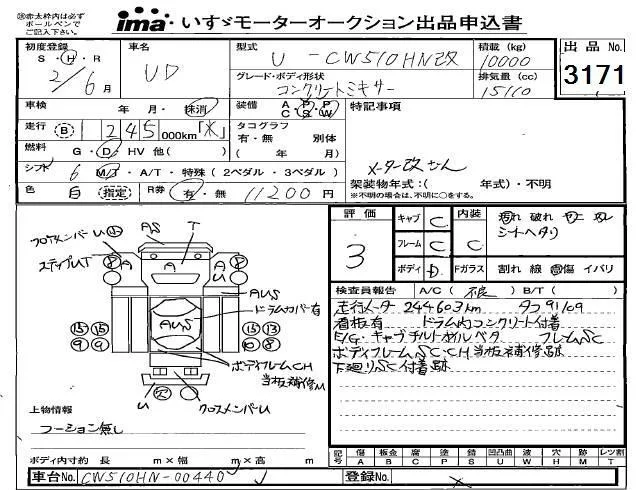 ※赤太枠内は必ず
ボールペンで
ご記入下さい。
ima いすゞモーターオークション出品申込書
初度登録 車名 型式 U-CW510HN改 積載(kg) 10000 出品No. 3171
S・H・R 2/6月 UD グレード・ボディ形状 コンクリートミキサー 排気量(cc)
車検 年 月・抹消 装備 A P P C S W 特記事項
走行 B 1 245 000km「*」 タコグラフ
有・無 別体
燃料 G・D・HV 他( ) ( 年 月)
シフト 6 M/T・A/T・特殊(2ペダル・3ペダル)
メーター改ざん
架装物年式:( 年式)・不明
色 白 指定 R券 有・無 11200円 ※不明の場合は、不明に○をする。
評価 3
キャブ C 内装 C 汚れ 破れ
シートヘタリ
フレーム C
ボディ D Fガラス 割れ 線 傷 イバリ
フロアメンバーU AS T
ステップUT A A
AUS
ドラムカバー有
AUS
15 15 15 13
9 9 10 8
ボディフレームCH
当板補修U
U 欠 クロスメンバーU
検査員報告 A/C( 不良 ) B/T( )
走行メーター 244603km タコ91109
看板有 ドラム内コンクリート付着
E/G・キャブチルトオイルベタ フレームSC
ボディフレームSC・CH当板補修跡
下廻りSC付着跡
上物情報
クーション無し
ボディ内寸約 長 m×幅 m×高 m
記号 傷 板金 腐 塗 錆 凹凸曲 波 穴 跡 レツ割
A B C P S U W H M T
車台No. CW510HN-00440 登録No.